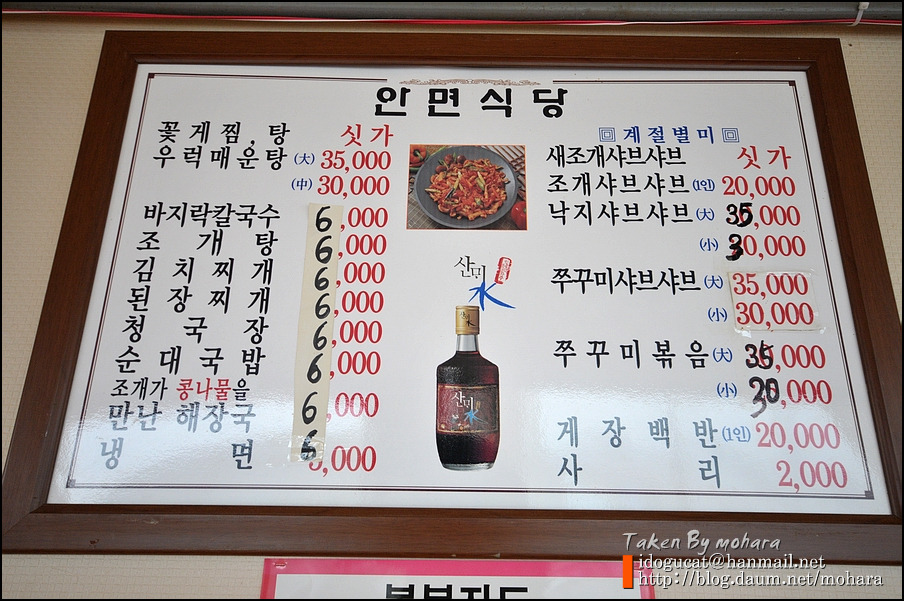 안면식당
꽃게찜,탕 싯가
우럭매운탕 (大) 35,000
(中) 30,000
바지락칼국수 6,000
조개탕 6,000
김치찌개 6,000
된장찌개 6,000
청국장 6,000
순대국밥 6,000
조개가 콩나물을
만난 해장국 6,000
냉면 6,000
산미水
산미水
回계절별미回
새조개샤브샤브 싯가
조개샤브샤브 (1인) 20,000
낙지샤브샤브 (大) 35,000
(小) 30,000
쭈꾸미샤브샤브 (大) 35,000
(小) 30,000
쭈꾸미볶음 (大) 35,000
(小) 30,000
게장백반 (1인) 20,000
사리 2,000
Taken By mohara
idogucat@hanmail.net
http://blog.daum.net/mohara